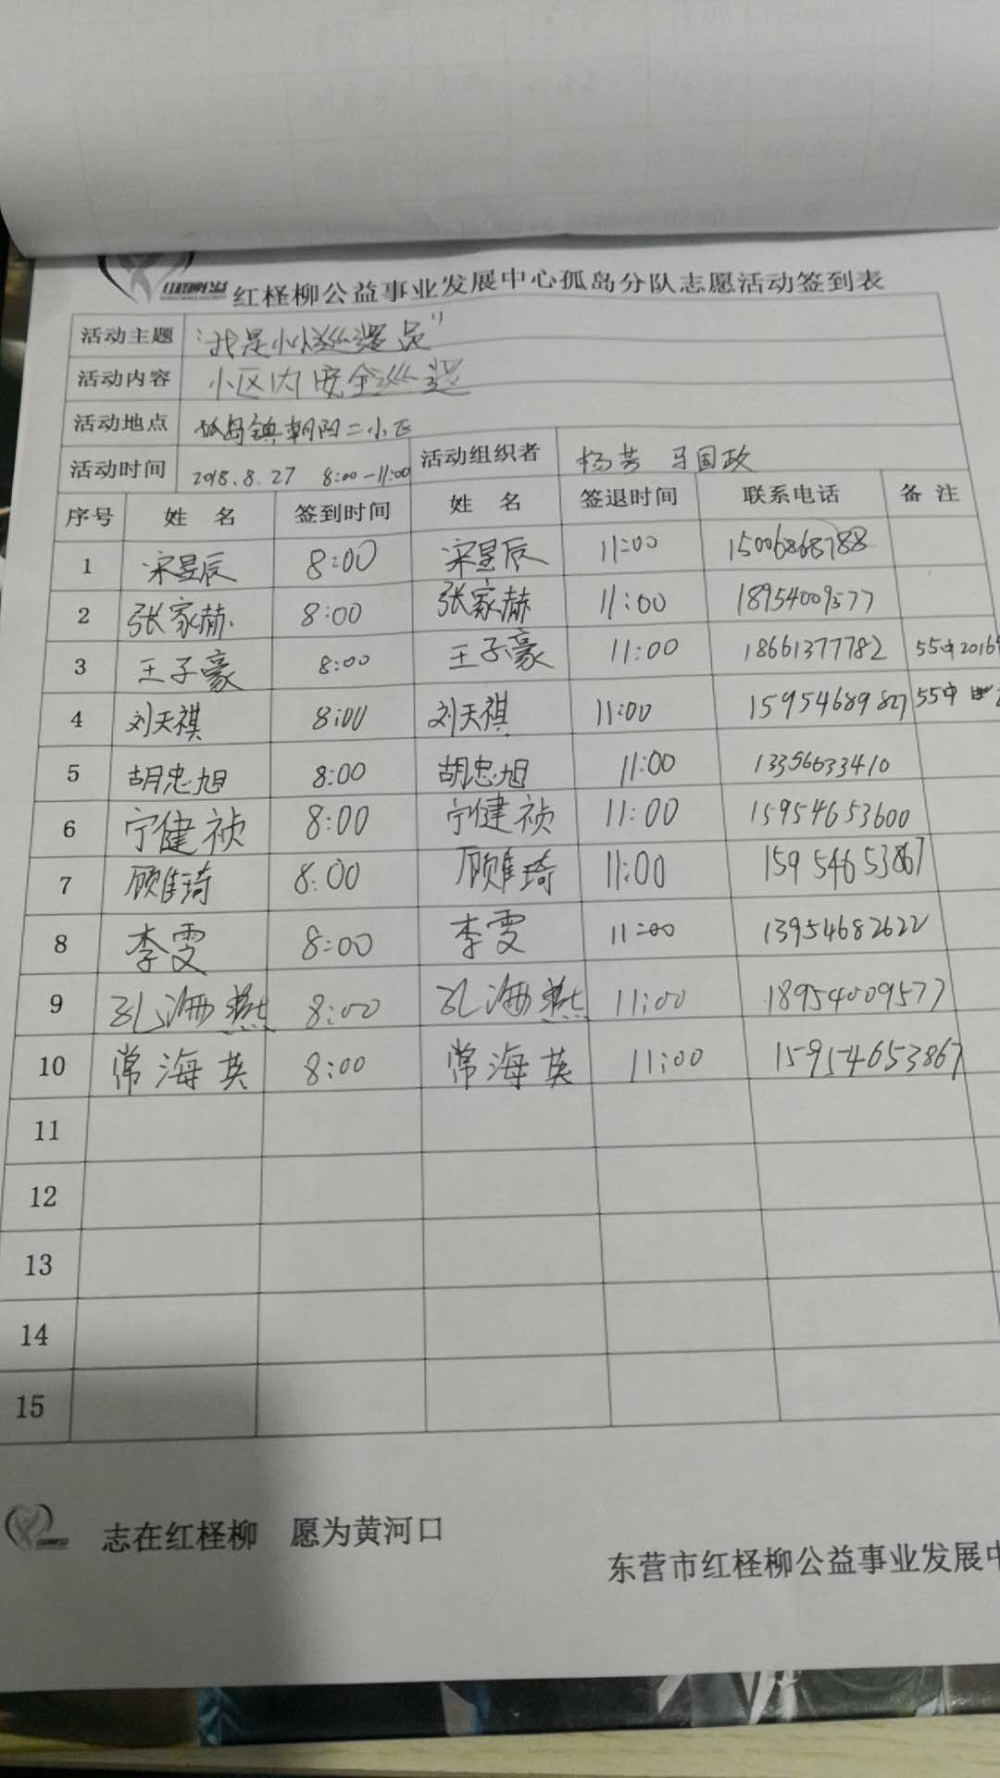 红柽柳公益事业发展中心孤岛分队志愿活动签到表
活动主题 "我是小小巡逻员"
活动内容 小区内安全巡逻
活动地点 孤岛镇朝阳二小区
活动时间 2018.8.27 8:00-11:00 活动组织者 杨芳 马国政
序号 姓名 签到时间 姓名 签退时间 联系电话 备注
1 宋昱辰 8:00 宋昱辰 11:00 15006868788
2 张家赫 8:00 张家赫 11:00 18954009577
3 王子豪 8:00 王子豪 11:00 18661377782 55中2016
4 刘天祺 8:00 刘天祺 11:00 15954689827 55中
5 胡忠旭 8:00 胡忠旭 11:00 13356633410
6 宁健祯 8:00 宁健祯 11:00 15954653600
7 顾隹琦 8:00 顾隹琦 11:00 15954653867
8 李雯 8:00 李雯 11:00 13954682622
9 孔洒燕 8:00 孔洒燕 11:00 18954009577
10 常海英 8:00 常海英 11:00 15954653867
11
12
13
14
15
志在红柽柳 愿为黄河口
东营市红柽柳公益事业发展中